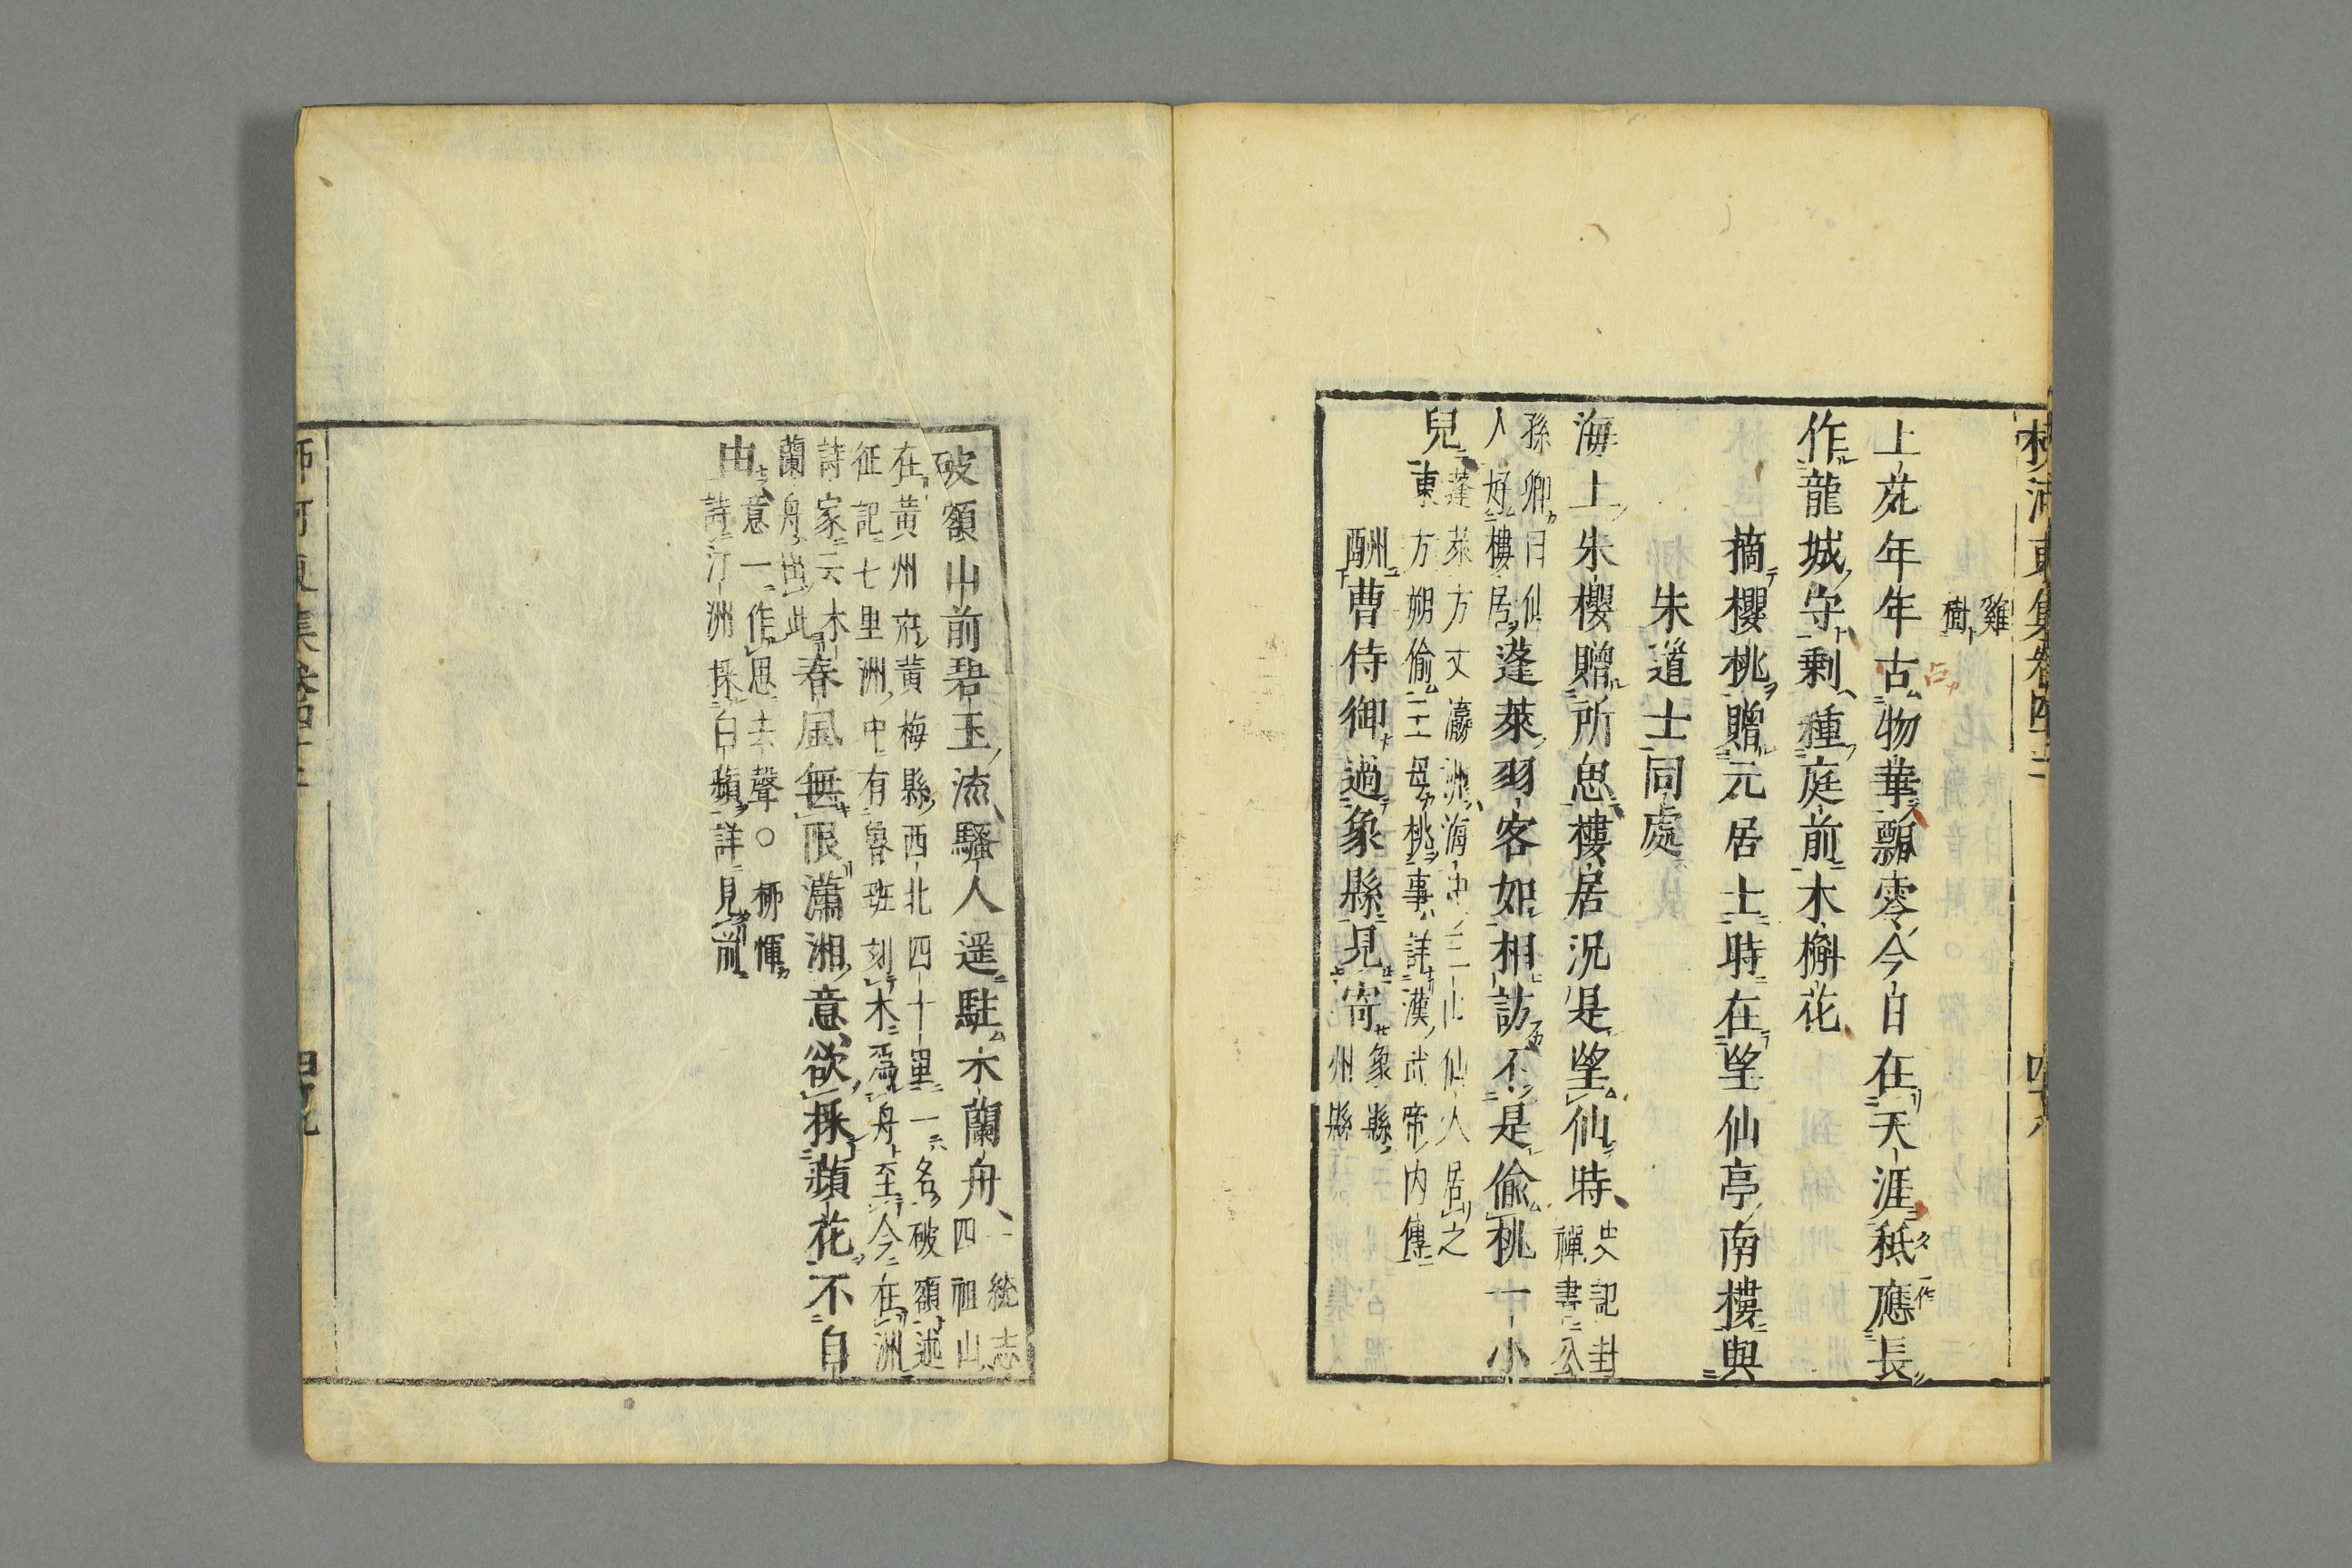 雞
樹
上苑年年古物華飄零今日在天涯秪應長
一作
作龍城守剩種庭前木槲花
摘櫻桃贈元居士時在望仙亭南樓與
朱道士同處
海上朱櫻贈所思樓居況是望仙時史記封
禪書公
孫卿曰仙
人好樓居蓬萊羽客如相訪不是偷桃一小
兒蓬萊方丈瀛洲海中三山仙人居之
東方朔偷王母桃事詳漢武帝內傳
酬曹侍御過象縣見寄象縣
州縣
破額山前碧玉流騷人遥駐木蘭舟一統志
四祖山
在黃州府黃梅縣西北四十里一名破額述
征記七里洲中有魯班刻木爲舟至今在洲
詩家云木
蘭舟出此春風無限瀟湘意欲採蘋花不自
由意一作思去聲○柳惲
詩汀洲採白蘋詳見前